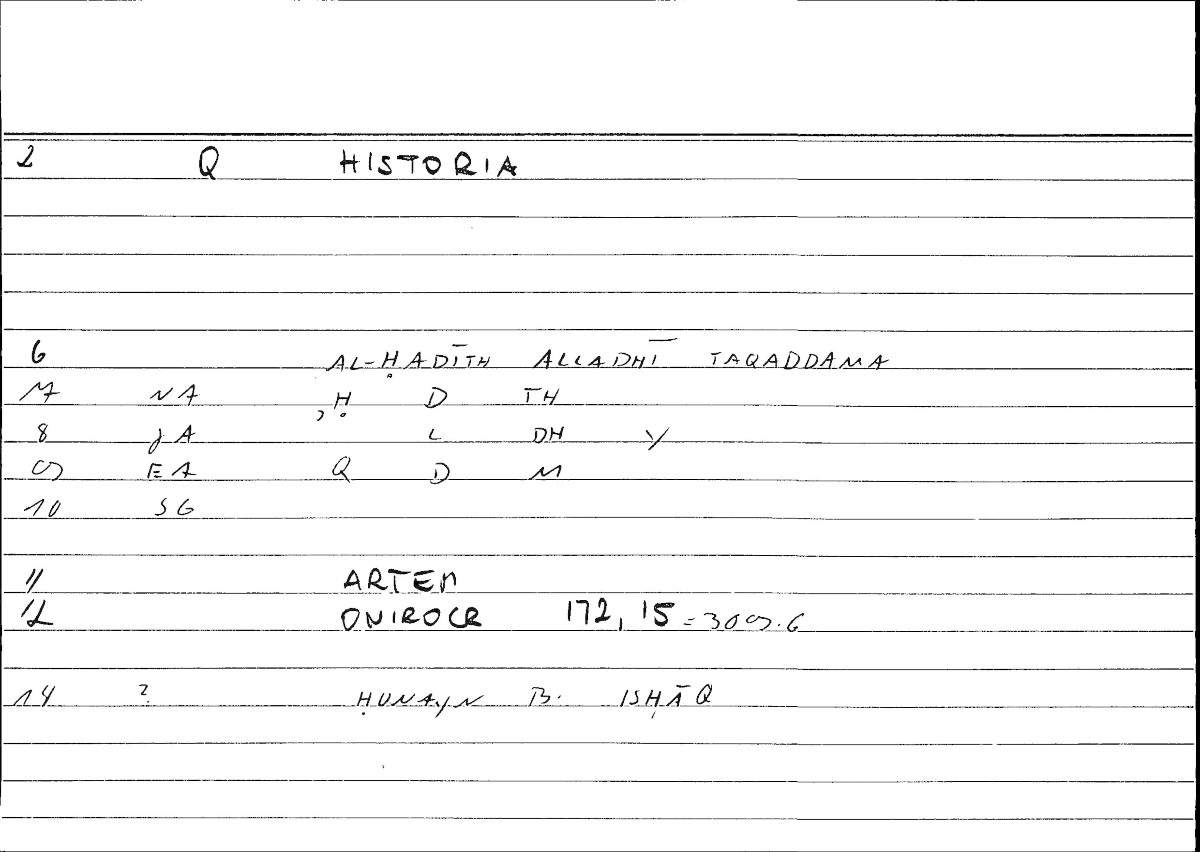 2 Q HISTORIA
6 AL-ḤADĪTH ALLADHĪ TAQADDAMA
7 NA Ḥ D TH
8 JA L DH Y
9 EA Q D M
10 SG
11 ARTEM
12 ONIROCR 172, 15 = 309.6
14 ? ḤUNAYN B. ISḤĀQ